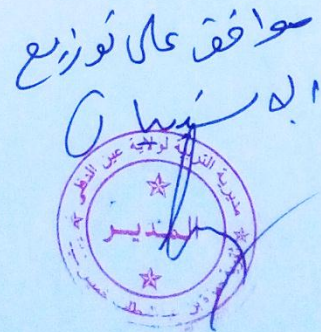 موافق على توزيع
الاستبيان
مديرية التربية لولاية عين الدفلى
المديـــر